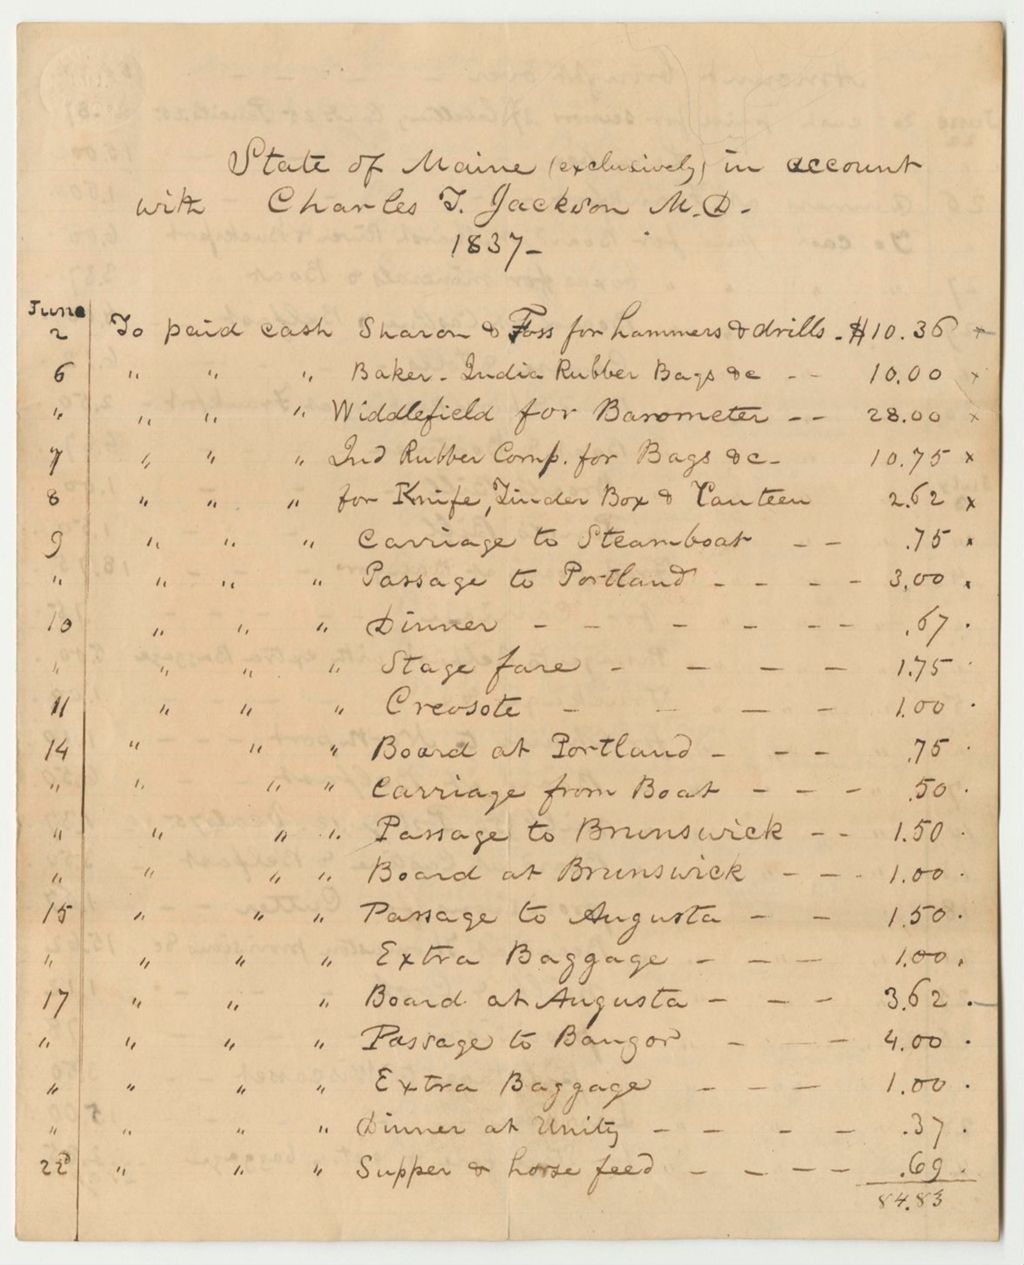 State of Maine (exclusively) in account
with Charles T. Jackson M.D.
1837-
June
2 To paid cash Sharon & Foss for hammers & drills - $10.36 x
6 " " " Baker - India Rubber Bags &c - - 10.00 x
" " " " Widdlefield for Barometer - - 28.00 x
7 " " " Ind Rubber Comp. for Bags &c - 10.75 x
8 " " " for Knife, Tinder Box & Canteen 2.62 x
9 " " " Carriage to Steamboat - - .75 x
" " " " Passage to Portland - - - - 3.00 .
10 " " " Dinner - - - - - - - .67 .
" " " " Stage fare - - - - 1.75 -
11 " " " Creosote - - - - 1.00 .
14 " " " Board at Portland - - - .75 .
" " " " Carriage from Boat - - - .50 .
" " " " Passage to Brunswick - - 1.50 .
" " " " Board at Brunswick - - - 1.00 .
15 " " " Passage to Augusta - - 1.50 .
" " " " Extra Baggage - - - - 1.00 .
17 " " " Board at Augusta - - - 3.62 .
" " " " Passage to Bangor - - - 4.00 .
" " " " Extra Baggage - - - 1.00 .
" " " " Dinner at Unity - - - - .37 .
22d " " " Supper & horse feed - - - - .69 .
84.83